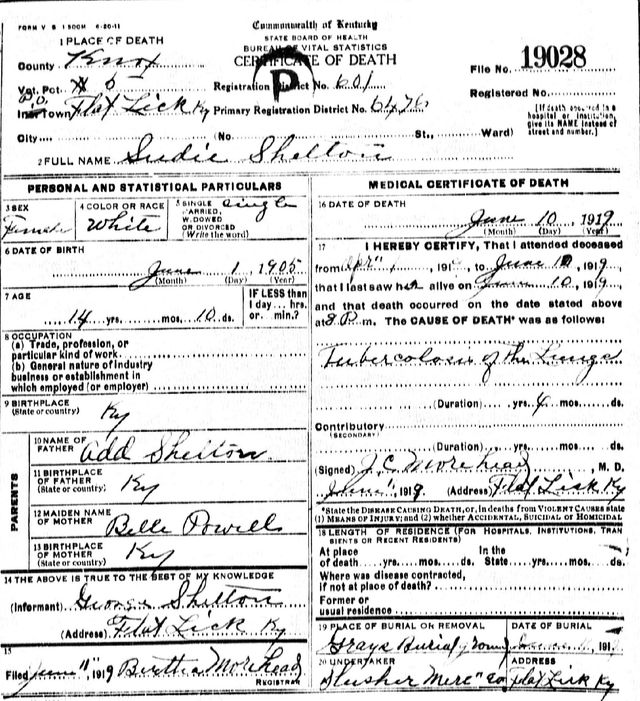 FORM V S 1 500M 6-20-11
Commonwealth of Kentucky
STATE BOARD OF HEALTH
BUREAU OF VITAL STATISTICS
CERTIFICATE OF DEATH
1 PLACE OF DEATH
County Knox
File No. 19028
Vot. Pct. # 5
Registration District No. 601
Registered No.
P.O.
Inc. Town Flat Lick Ky
Primary Registration District No. 6476
[If death occurred in a hospital or institution, give its NAME instead of street and number.]
City (No St., Ward)
2 FULL NAME Sudie Shelton
P
PERSONAL AND STATISTICAL PARTICULARS
3 SEX Female
4 COLOR OR RACE White
5 SINGLE MARRIED, WIDOWED OR DIVORCED (Write the word) Single
6 DATE OF BIRTH
June 1, 1905
(Month) (Day) (Year)
7 AGE
14 yrs. mos. 10 ds.
IF LESS than 1 day... hrs. or min.?
8 OCCUPATION
(a) Trade, profession, or particular kind of work
(b) General nature of industry business or establishment in which employed (or employer)
9 BIRTHPLACE (State or country) Ky
PARENTS
10 NAME OF FATHER Add Shelton
11 BIRTHPLACE OF FATHER (State or country) Ky
12 MAIDEN NAME OF MOTHER Belle Powell
13 BIRTHPLACE OF MOTHER (State or country) Ky
14 THE ABOVE IS TRUE TO THE BEST OF MY KNOWLEDGE
(Informant) George Shelton
(Address) Flat Lick Ky
15
Filed June 11, 1919 Bertha Morehead
REGISTRAR
MEDICAL CERTIFICATE OF DEATH
16 DATE OF DEATH
June 10, 1919
(Month) (Day) (Year)
17 I HEREBY CERTIFY, That I attended deceased
from Apr 191 , to June 10 1919
that I last saw her alive on June 10, 1919
and that death occurred on the date stated above
at 8 P. m. The CAUSE OF DEATH* was as follows:
Tubercolosis of the Lungs
(Duration) yrs. 4 mos. ds.
Contributory
(SECONDARY)
(Duration) yrs. mos. ds.
(Signed) J.C. Morehead, M. D.
June 11, 1919 (Address) Flat Lick Ky
*State the DISEASE CAUSING DEATH, or, in deaths from VIOLENT CAUSES state
(1) MEANS OF INJURY; and (2) whether ACCIDENTAL, SUICIDAL or HOMICIDAL
18 LENGTH OF RESIDENCE (FOR HOSPITALS, INSTITUTIONS, TRANSIENTS OR RECENT RESIDENTS)
At place of death yrs. mos. ds.
In the State yrs. mos. ds.
Where was disease contracted, if not at place of death?
Former or usual residence
19 PLACE OF BURIAL OR REMOVAL
Grays Burial Ground
DATE OF BURIAL
191
20 UNDERTAKER
Slusher Merc Co
ADDRESS
Flat Lick Ky